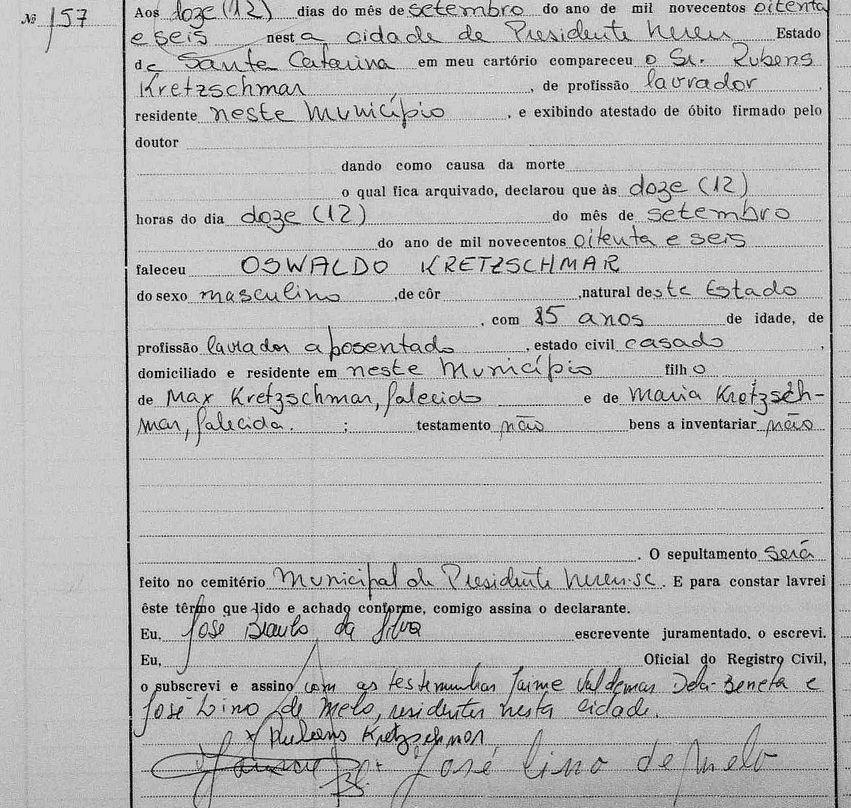 Nº 157
Aos doze (12) dias do mês de setembro do ano de mil novecentos oitenta
e seis nesta cidade de Presidente Nereu Estado
de Santa Catarina em meu cartório compareceu o Sr. Rubens
Kretzschmar, de profissão lavrador,
residente neste Município, e exibindo atestado de óbito firmado pelo
doutor
dando como causa da morte
o qual fica arquivado, declarou que às doze (12)
horas do dia doze (12) do mês de setembro
do ano de mil novecentos oitenta e seis
faleceu OSWALDO KRETZSCHMAR
do sexo masculino, de côr, natural deste Estado
, com 85 anos de idade, de
profissão lavrador aposentado, estado civil casado,
domiciliado e residente em neste Município filho
de Max Kretzschmar, falecido e de Maria Kretzsch-
mar, falecida. ; testamento não bens a inventariar não
. O sepultamento será
feito no cemitério Municipal de Presidente Nereu-sc. E para constar lavrei
êste têrmo que lido e achado conforme, comigo assina o declarante.
Eu, José da Silva escrevente juramentado, o escrevi.
Eu, Oficial do Registro Civil,
o subscrevi e assino com as testemunhas Jaime Valdemar Dela-Beneta e
José Lino de Melo, residentes nesta cidade.
x Rubens Kretzschmar
José Lino de Melo